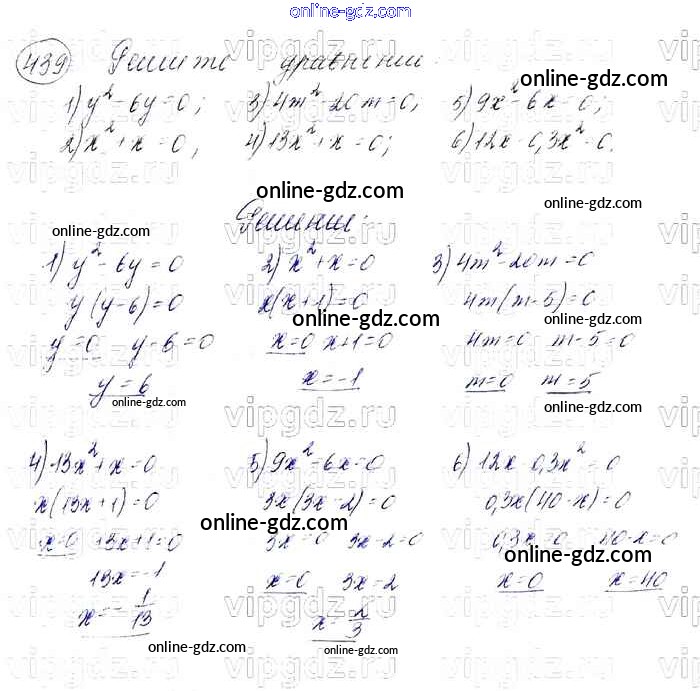 online-gdz.com
439 Решите уравнения:
1) y² - 6y = 0; 3) 4m² - 20m = 0; 5) 9x² - 6x = 0;
2) x² + x = 0; 4) 13x² + x = 0; 6) 12x - 0,3x² = 0.
online-gdz.com
online-gdz.com
Решения:
1) y² - 6y = 0
y(y-6) = 0
y = 0 y - 6 = 0
y = 6
online-gdz.com
online-gdz.com
2) x² + x = 0
x(x+1) = 0
x = 0 x+1 = 0
x = -1
online-gdz.com
3) 4m² - 20m = 0
4m(m-5) = 0
4m = 0 m-5 = 0
m = 0 m = 5
online-gdz.com
online-gdz.com
4) 13x² + x = 0
x(13x+1) = 0
x = 0 13x+1 = 0
13x = -1
x = -1/13
online-gdz.com
5) 9x² - 6x = 0
3x(3x-2) = 0
3x = 0 3x-2 = 0
x = 0 3x = 2
x = 2/3
online-gdz.com
online-gdz.com
6) 12x 0,3x² = 0
0,3x(40-x) = 0
0,3x = 0 40-x = 0
x = 0 x = 40
online-gdz.com
vipgdz.ru